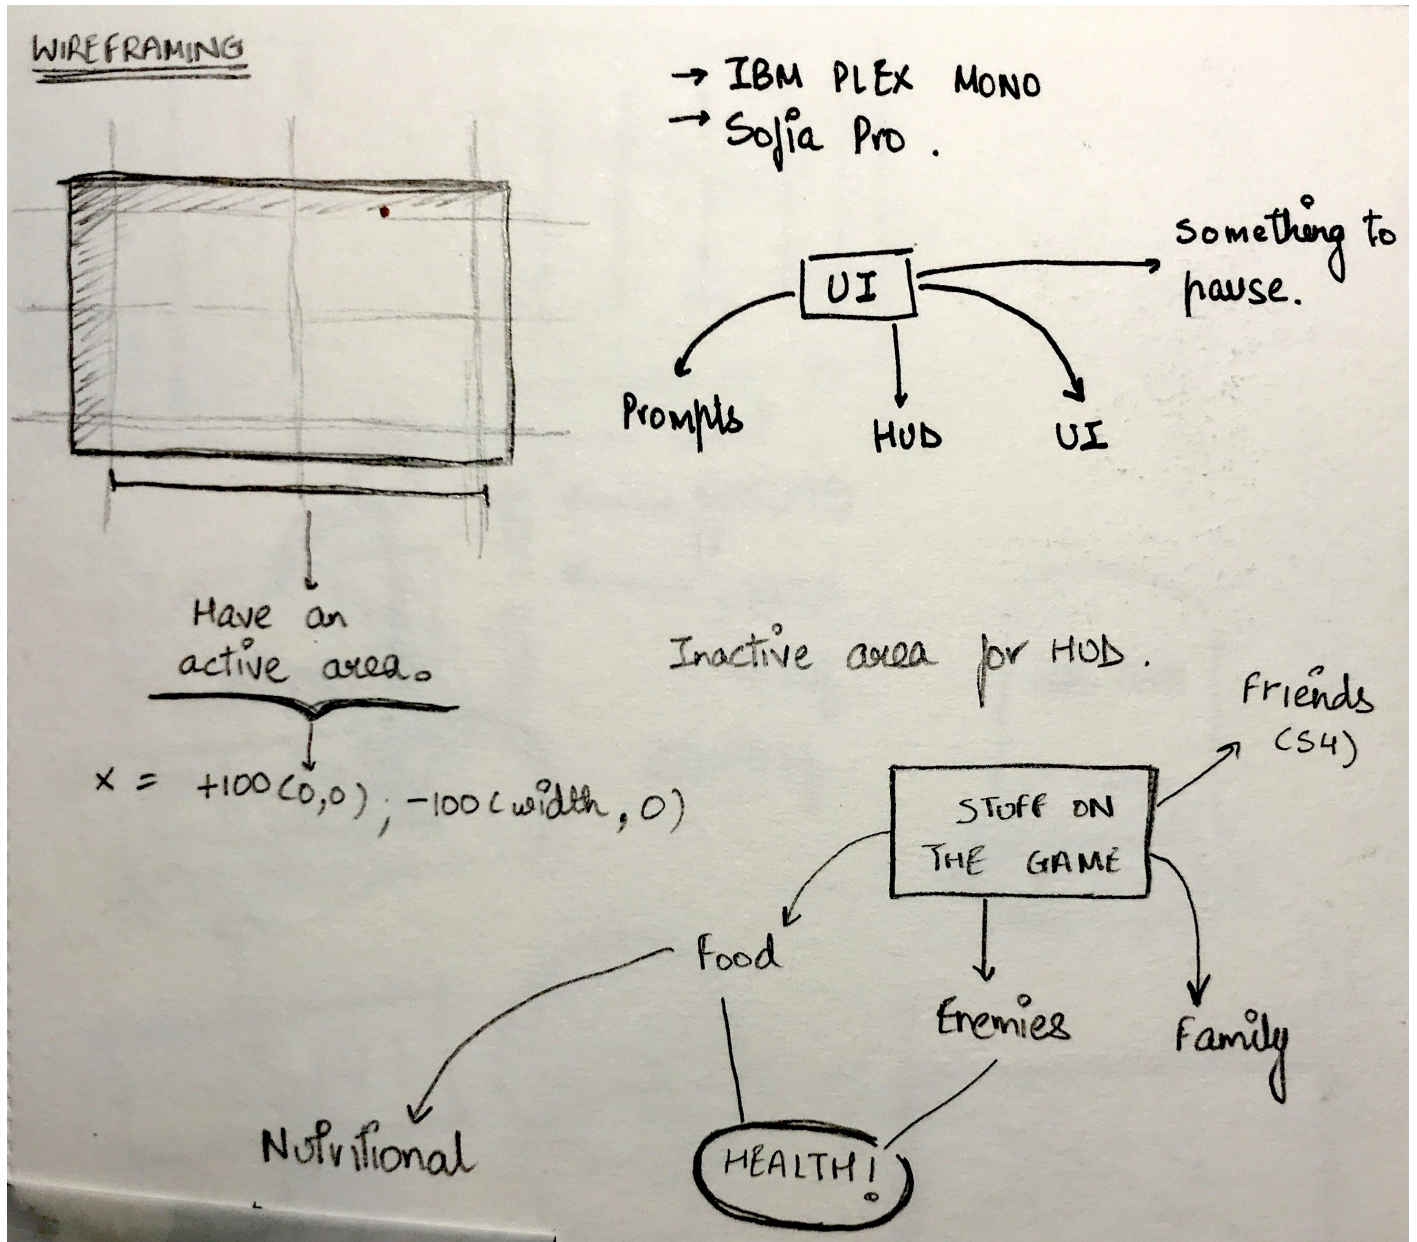 WIREFRAMING
→ IBM PLEX MONO
→ Sofia Pro.
UI
something to
pause.
Prompts
HUD
UI
Have an
active area.
x = +100(0,0); -100(width, 0)
Inactive area for HUD.
STUFF ON
THE GAME
Friends
(S4)
Food
Enemies
Family
Nutritional
HEALTH!